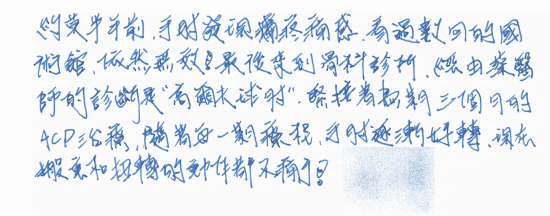 約莫半年前，手肘發現痠疼痛感，看過數回的國
術館，依然無效！最後來到骨科診所，經由蔡醫
師的診斷是"高爾夫球肘"，接著為期三個月的
ACP治療，隨著每一期療程，手肘逐漸好轉，現在
搬重和扭轉的動作都不痛了！